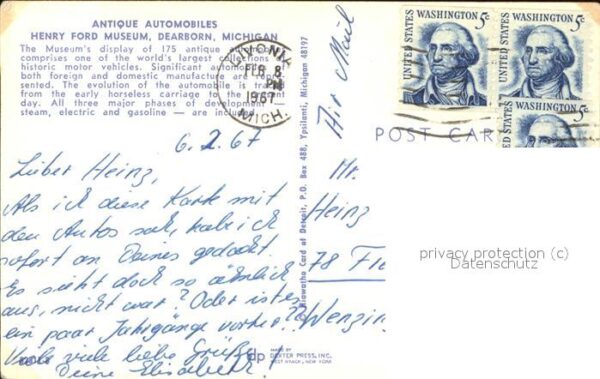 ANTIQUE AUTOMOBILES
HENRY FORD MUSEUM, DEARBORN, MICHIGAN
The Museum's display of 175 antique
comprises one of the world's largest collections
historic motor vehicles. Significant
both foreign and domestic manufacture are
sented. The evolution of the automobile is
from the early horseless carriage to the
day. All three major phases of development
steam, electric and gasoline — are
FEB 8
PM
1967
MICH.
6.2.67
Lieber Heinz,
Als ich diese Karte mit
den Autos sah, hab ich
sofort an Deines gedacht.
Es sieht doch so ähnlich
aus, nicht war? Oder ist es
ein paar Jahrgänge vorher??
Viele viele liebe Grüße
Deine Elisabeth
Hiawatha Card of Detroit, P.O. Box 488, Ypsilanti, Michigan 48197
MADE BY
dp DEXTER PRESS, INC.
WEST NYACK, NEW YORK
Air Mail
UNITED STATES
WASHINGTON 5c
UNITED STATES
WASHINGTON 5c
UNITED STATES
WASHINGTON 5c
POST CARD
Hr.
Heinz
78
privacy protection (c)
Datenschutz